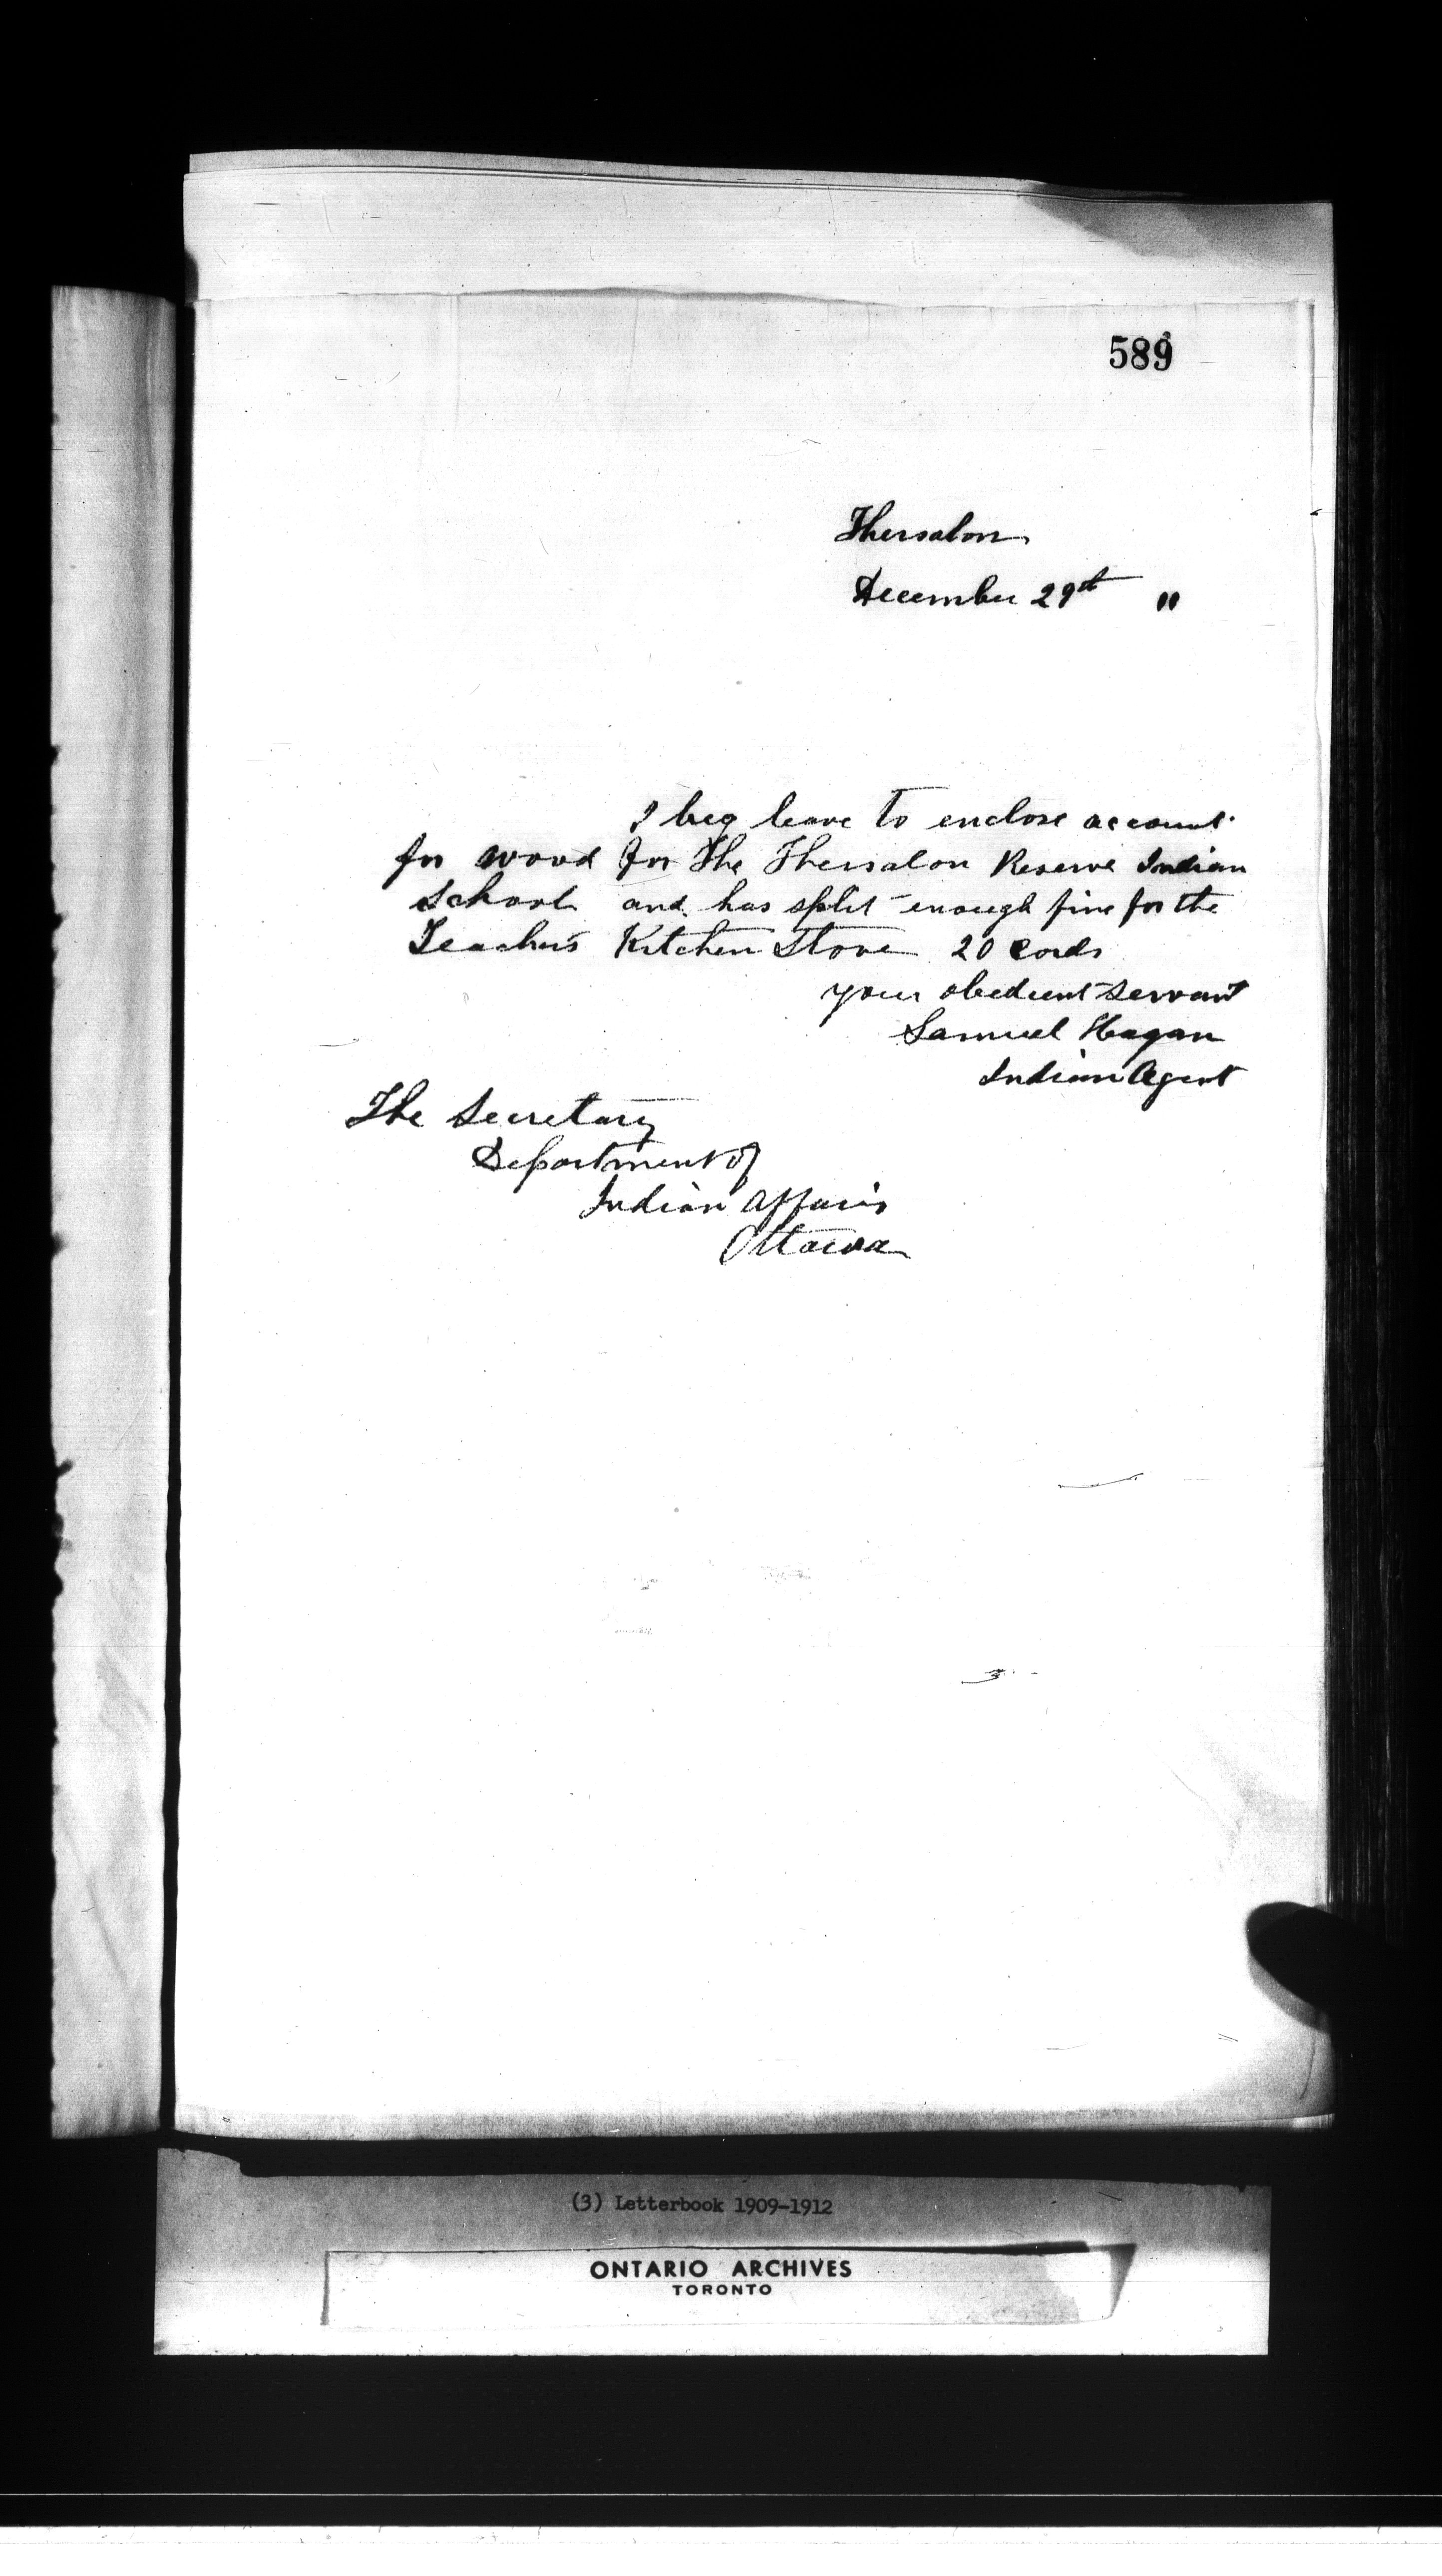 589
Thessalon
December 29th 11
I beg leave to enclose account
for wood for The Thessalon Reserve Indian
School and has split enough fine for the
Teachers Kitchen Stove 20 Cords
your obedient servant
Samuel Hagan
Indian Agent
The Secretary
Department of
Indian Affairs
Ottawa
(3) Letterbook 1909-1912
ONTARIO ARCHIVES
TORONTO